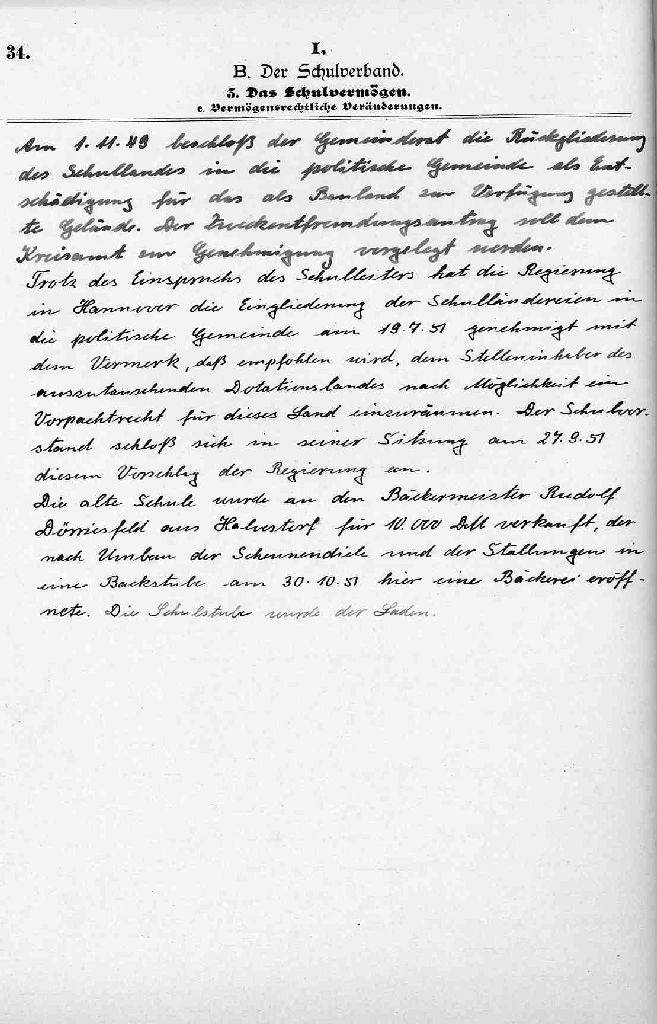 34.
I.
B. Der Schulverband.
5. Das Schulvermögen.
c. Vermögensrechtliche Veränderungen.
Am 1.11.49 beschloß der Gemeinderat die Rückgliederung
des Schullandes in die politische Gemeinde als Ent-
schädigung für das als Bauland zur Verfügung gestell-
te Gelände. Der Zweckentfremdungsantrag soll dem
Kreisamt zur Genehmigung vorgelegt werden.
Trotz des Einspruchs des Schulleiters hat die Regierung
in Hannover die Eingliederung der Schulländereien in
die politische Gemeinde am 19.7.51 genehmigt mit
dem Vermerk, daß empfohlen wird, dem Stelleninhaber des
auszutauschenden Dotationslandes nach Möglichkeit ein
Vorpachtrecht für dieses Land einzuräumen. Der Schulvor-
stand schloß sich in seiner Sitzung am 27.9.51
diesem Vorschlag der Regierung an.
Die alte Schule wurde an den Bäckermeister Rudolf
Dörriesfeld aus Halvestorf für 10.000 DM verkauft, der
nach Umbau der Scheunendiele und der Stallungen in
eine Backstube am 30.10.51 hier eine Bäckerei eröff-
nete. Die Schulstube wurde der Laden.